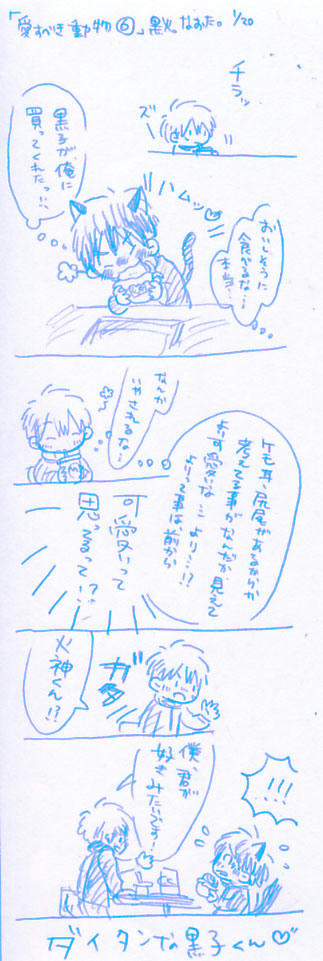 「愛すべき動物⑥」黒火なおた。1/20
チラッ
ズ
黒子が、俺に
買ってくれたっ!!、
ハムッ♡
おいしそうに
食べるな…
本当…
なんか
いやされるな…
ケモ耳、尻尾があるからか
考えてる事がなんだか見えて
より可愛いな…
より…!?
よりって事は前から
可愛いって
思ってるって!?
ガタ
火神くん!?
!!!
僕、君が
好きみたいです…
ダイタンな黒子くん♡